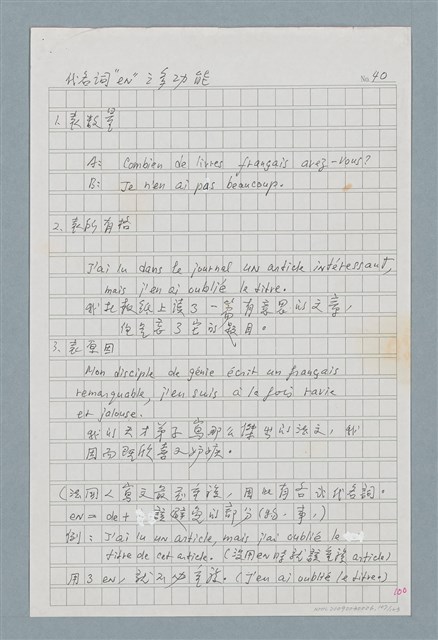 代名詞"en"之多功能
No 40
1. 表數量
A: Combien de livres français avez-vous?
B: Je n'en ai pas beaucoup.
2. 表所有格
J'ai lu dans le journal un article intéressant,
mais j'en ai oublié le titre.
我在報紙上讀了一篇有意思的文章,
但忘了它的題目。
3. 表原因
Mon disciple de génie écrit un français
remarquable, j'en suis à la fois ravie
et jalouse.
我的天才弟子寫那么傑出的法文,我
因而既欣喜又妒嫉。
(法國人寫文最忌重複,用以有古代名詞。
en = de + 該避免的部分(物、事、)
例: J'ai lu un article, mais j'ai oublié le
titre de cet article. (沒用en時就該重複article)
用了en,就不必重複。(J'en ai oublié le titre.)
100